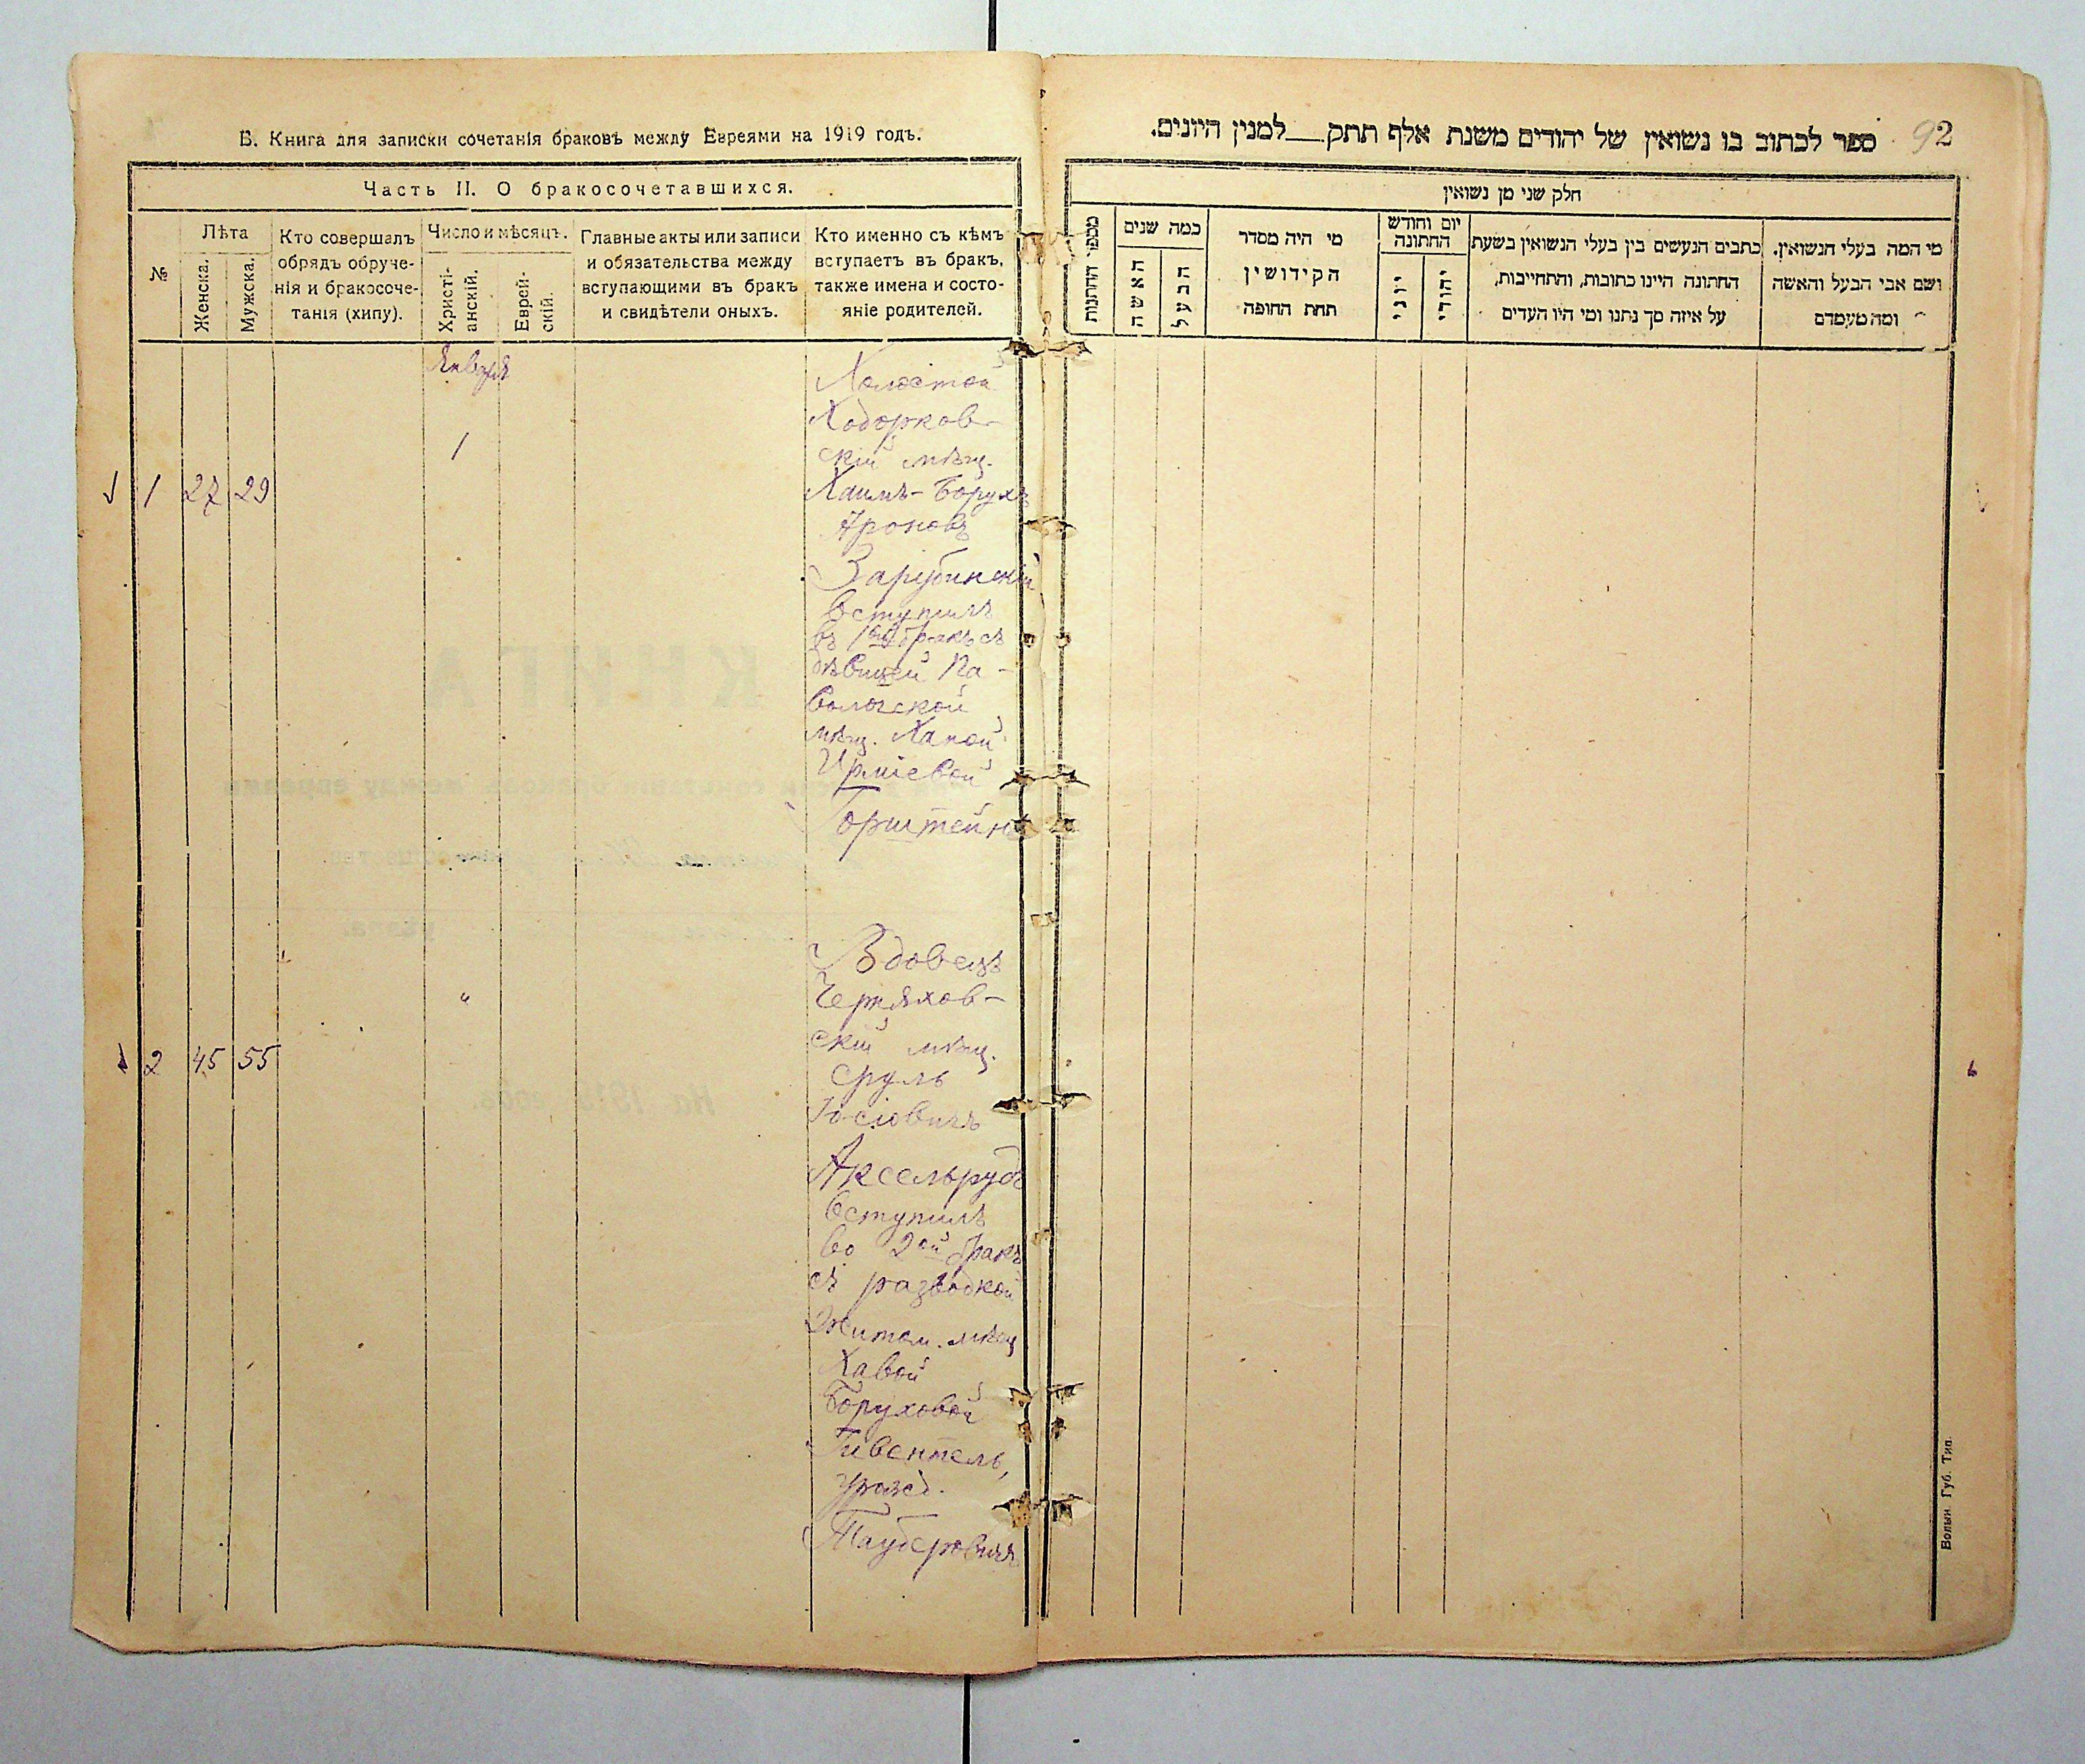 В. Книга для записки сочетанія браковъ между Евреями на 1919 годъ.
Часть II. О бракосочетавшихся.
№
Лѣта
Женска.
Мужска.
Кто совершалъ
обрядъ обруче-
нія и бракосоче-
танія (хипу).
Число и мѣсяцъ.
Христі-
анскій.
Еврей-
скій.
Главные акты или записи
и обязательства между
вступающими въ бракъ
и свидѣтели оныхъ.
Кто именно съ кѣмъ
вступаетъ въ бракъ,
также имена и состо-
яніе родителей.
Января
1
1 27 29
Холостой
Ходорков-
скій мѣщ.
Хаимъ-Борухъ
Ароновъ
Зарубинскій
вступилъ
въ 1ый бракъ съ
дѣвицей Па-
волочской
мѣщ. Ханой
Горштейнъ
"
2 45 55
Вдовецъ
Черняхов-
скій мѣщ.
Сруль
Іосіовичъ
Аксельрудъ
вступилъ
во 2ой бракъ
съ разводкой
Житом. мѣщ
Хавой
Боруховой
Гивентель,
урожд.
Тауберовичъ
ספר לכתוב בו נשואין של יהודים משנת אלף תתק__למנין היונים.
92
חלק שני מן נשואין
מספר החתונות
כמה שנים
האשה
הבעל
מי היה מסדר
הקידושין
תחת החופה
יום וחודש
החתונה
יוני
יהודי
כתבים הנעשים בין בעלי הנשואין בשעת
החתונה היינו כתובות, והתחייבות,
על איזה סך נתנו ומי היו העדים
מי המה בעלי הנשואין.
ושם אבי הבעל והאשה
ומה מעמדם
Волын. Губ. Тип.